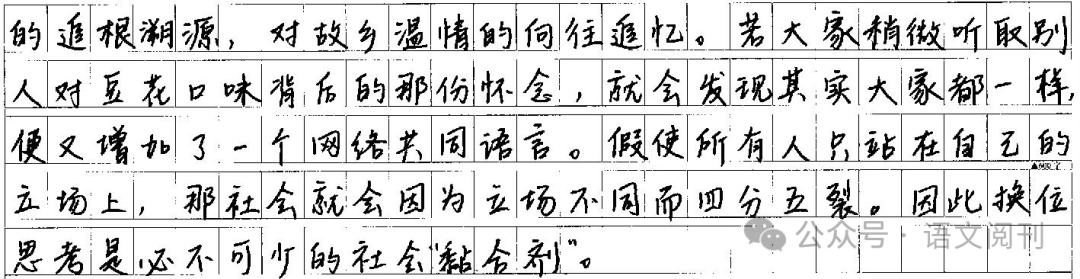 的追根溯源，对故乡温情的向往追忆。若大家稍微听取别
人对豆花口味背后的那份怀念，就会发现其实大家都一样，
便又增加了一个网络共同语言。假使所有人只站在自己的
立场上，那社会就会因为立场不同而四分五裂。因此换位
思考是必不可少的社会“黏合剂”。
公众号·语文阅刊